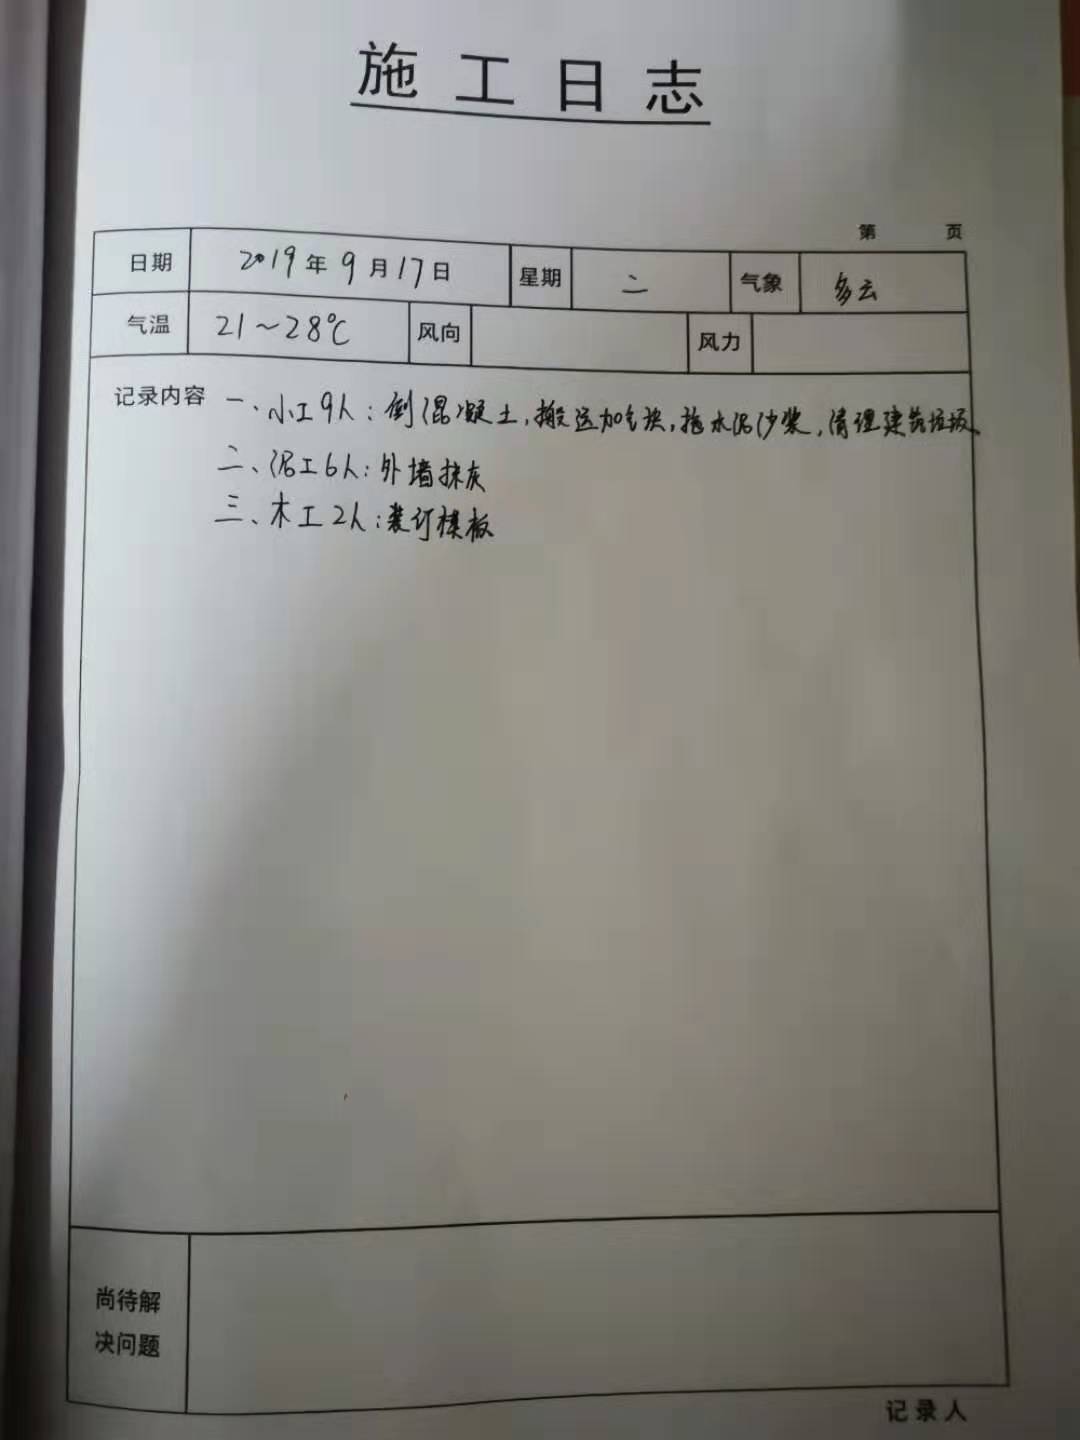 施工日志
第 页
日期 2019年9月17日 星期 二 气象 多云
气温 21～28℃ 风向 风力
记录内容 一、小工9人：倒混凝土，搬运加气块，拖水泥沙浆，清理建筑垃圾、
二、泥工6人：外墙抹灰
三、木工2人：装订模板
尚待解
决问题
记录人